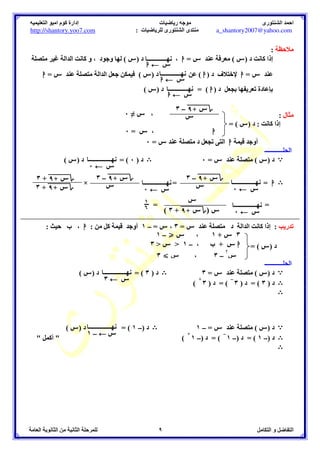 احمد الشنتوري موجه رياضيات إدارة كوم امبو التعليميه
a_shantory2007@yahoo.com منتدى الشنتورى للرياضيات : http://shantory.yoo7.com
ملاحظة :
إذا كانت د (س) معرفة عند س = ا ، نهــا د (س) لها وجود ، و كانت الدالة غير متصلة
س ← ا
عند س = ا لإختلاف د (ا) عن نهــا د (س) فيمكن جعل الدالة متصلة عند س = ا
س ← ا
بإعادة تعريفها بجعل د (ا) = نهــا د (س)
س ← ا
مثال :
إذا كانت : د (س) =
(√(س + ٩) − ٣) / س ، س ≠ ٠
ا ، س = ٠
أوجد قيمة ا التى تجعل د متصلة عند س = ٠
الحلــــــ
∵ د (س) متصلة عند س = ٠ ∴ د (٠) = نهــا د (س)
س ← ٠
∴ ا = نهــا (√(س + ٩) − ٣) / س = نهــا (√(س + ٩) − ٣) / س × (√(س + ٩) + ٣) / (√(س + ٩) + ٣)
س ← ٠ س ← ٠
= نهــا س / (س (√(س + ٩) + ٣)) = ١/٦
س ← ٠
تدريب : إذا كانت الدالة د متصلة عند س = ٣ ، س = − ١ أوجد قيمة كل من : ا ، ب حيث :
د (س) =
٣ س + ١ ، س ⩽ − ١
ا س + ب ، − ١ < س < ٣
س٢ − ٣ ، س ⩾ ٣
الحلــــــ
∵ د (س) متصلة عند س = ٣ ∴ د (٣) = نهــا د (س)
س ← ٣
∴ د (٣) = د (٣+) = د (٣−)
∴
∵ د (س) متصلة عند س = − ١ ∴ د (− ١) = نهــا د (س)
س ← − ١
∴ د (− ١) = د (− ١−) = د (− ١+) " أكمل "
∴
التفاضل و التكامل ٩ للمرحلة الثانية من الثانوية العامة